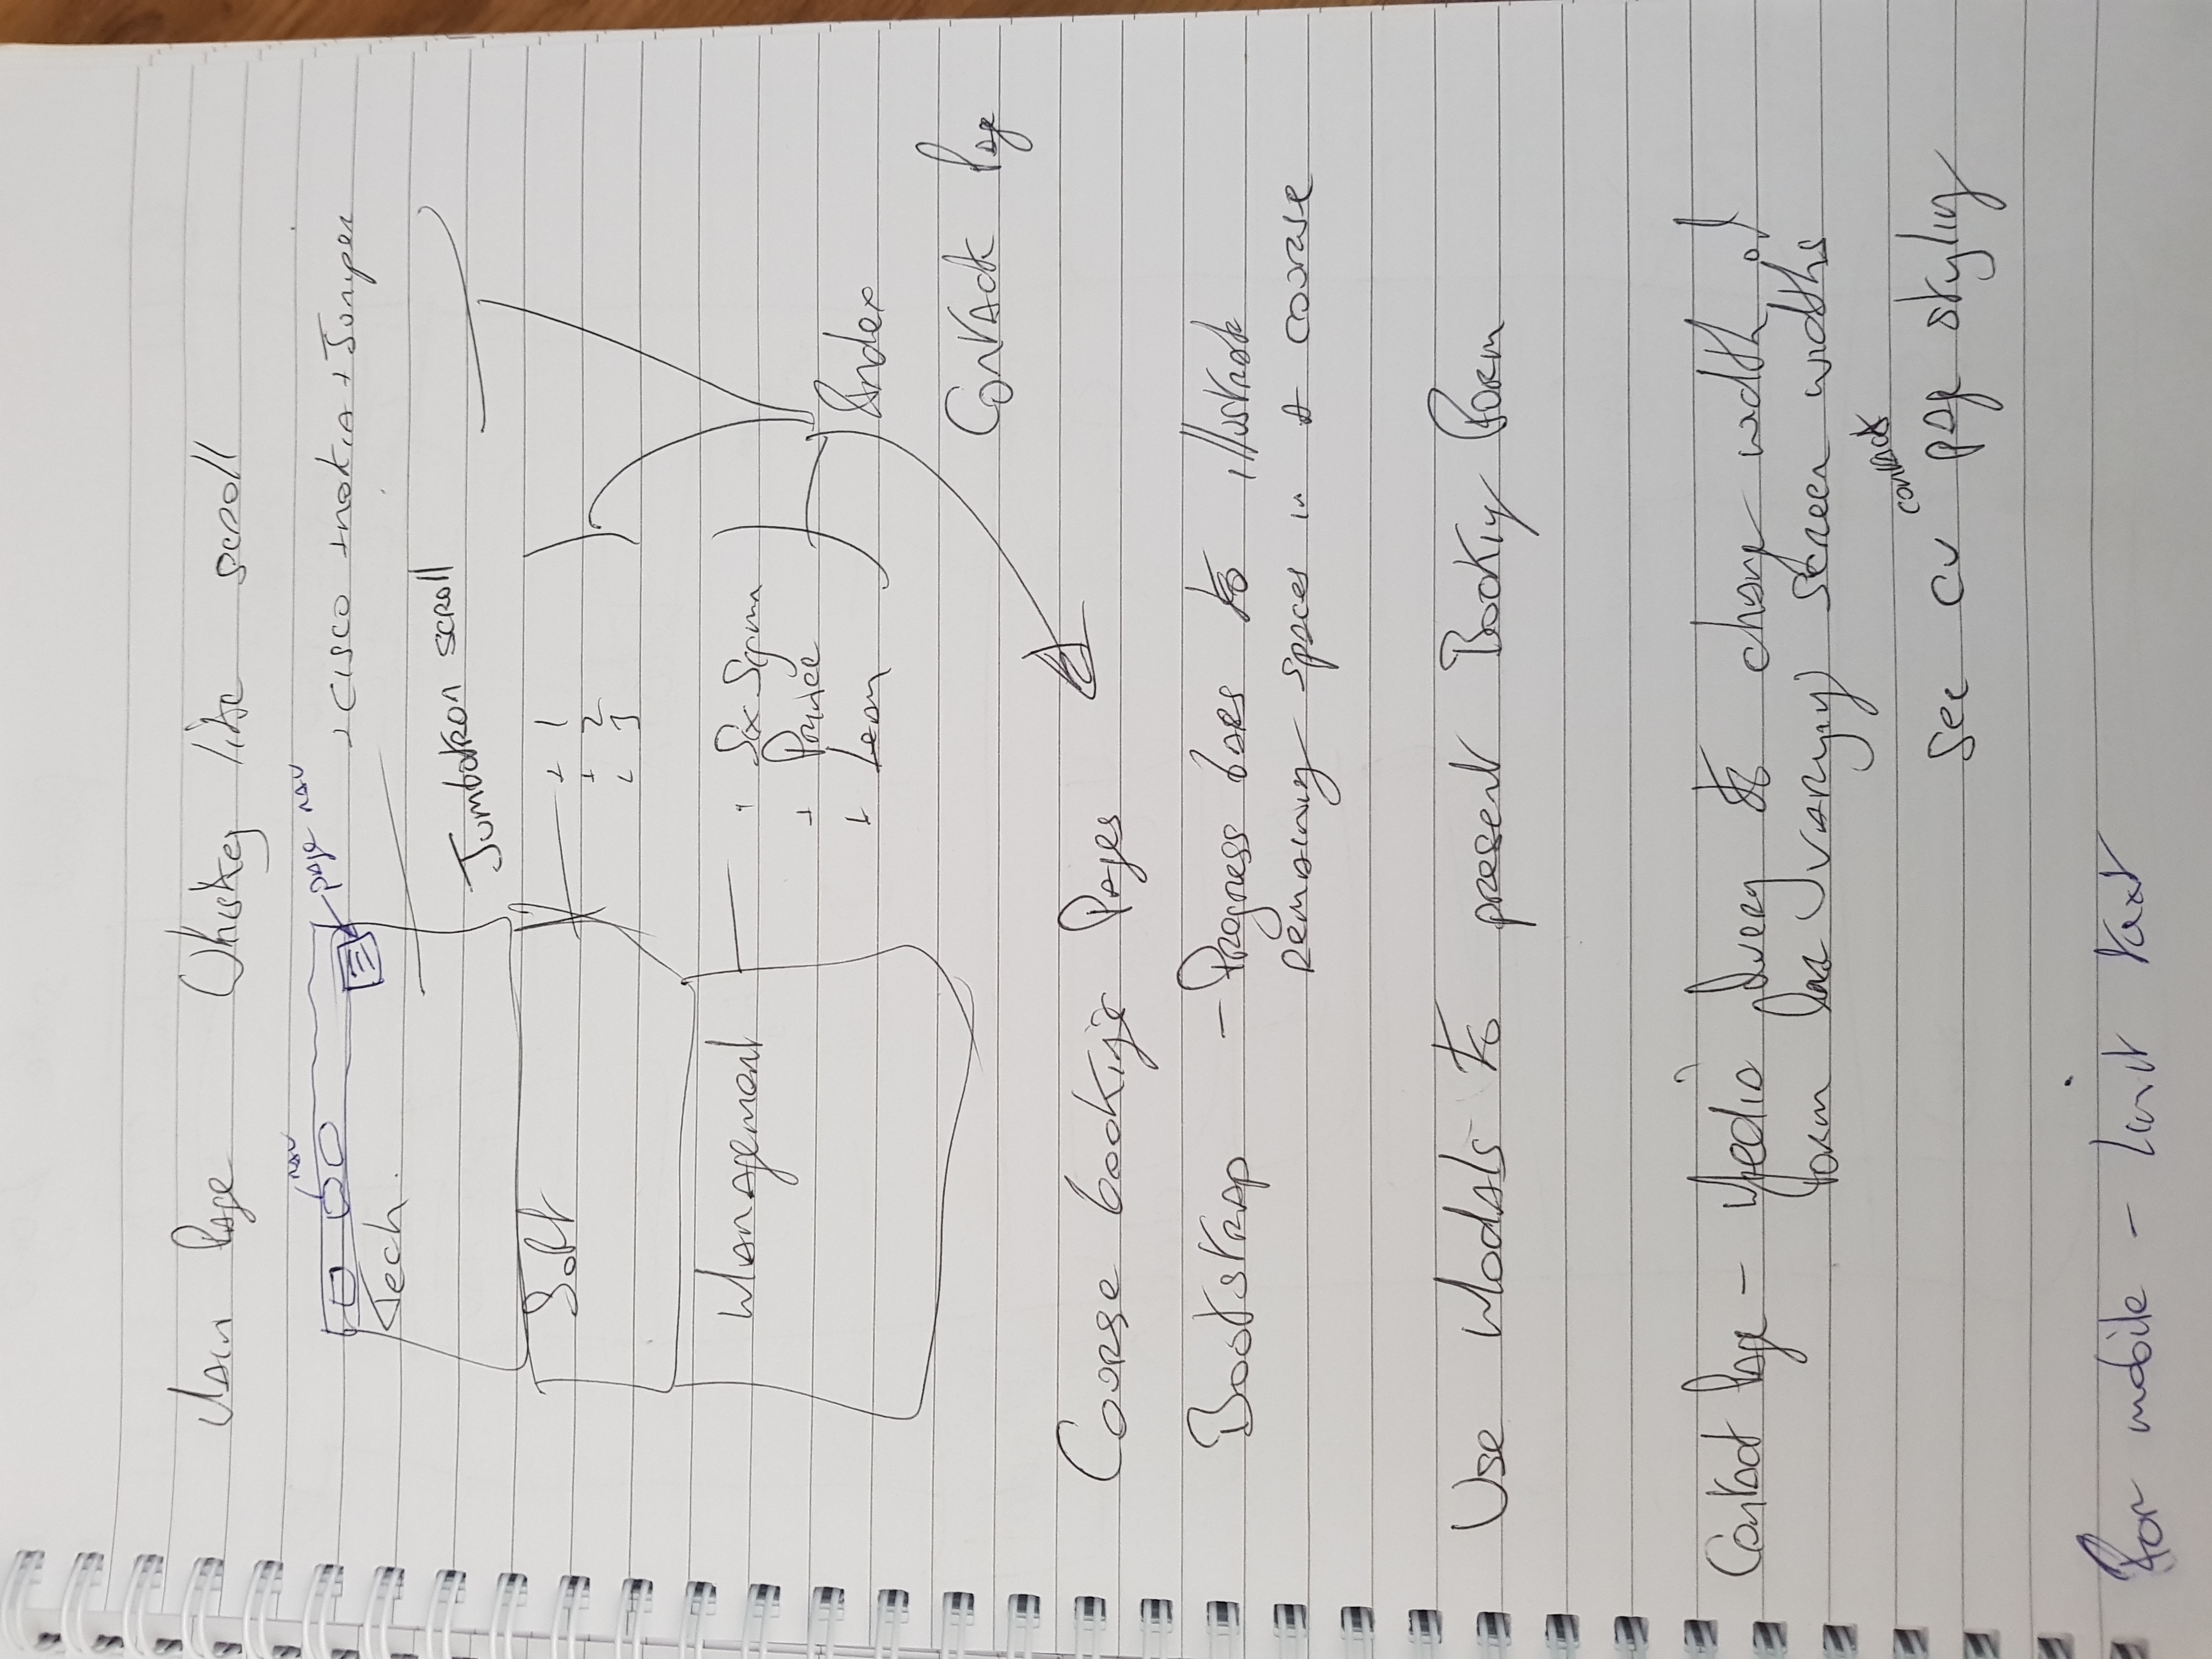 Main Page Whiskey like scroll
nav
page nav
+ CISCO + nokia + Juniper
Tech.
Jumbotron scroll
Soft
+ 1
+ 2
+ 3
Management
+ Six Sigma
+ Prince
+ Lean
Index
Contact Page
Course booking Pages
Bootstrap - Progress bars to illustrate
remaining spaces in a course
Use Modals to present Booking Form
Contact Page - Media Query to change width of
form for varying screen widths
contact
See CV page styling
For mobile - limit text